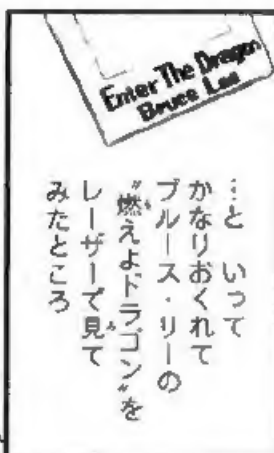 Enter The Dragon
Bruce Lee
…と いって
かなりおくれて
ブルース・リーの
“燃えよドラゴン”を
レーザーで見て
みたところ